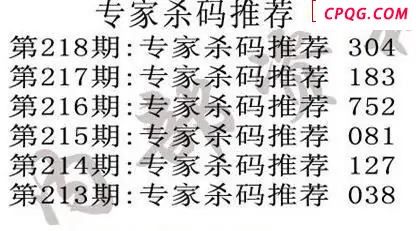 专家杀码推荐
CPQG.COM
第218期:专家杀码推荐 304
第217期:专家杀码推荐 183
第216期:专家杀码推荐 752
第215期:专家杀码推荐 081
第214期:专家杀码推荐 127
第213期:专家杀码推荐 038